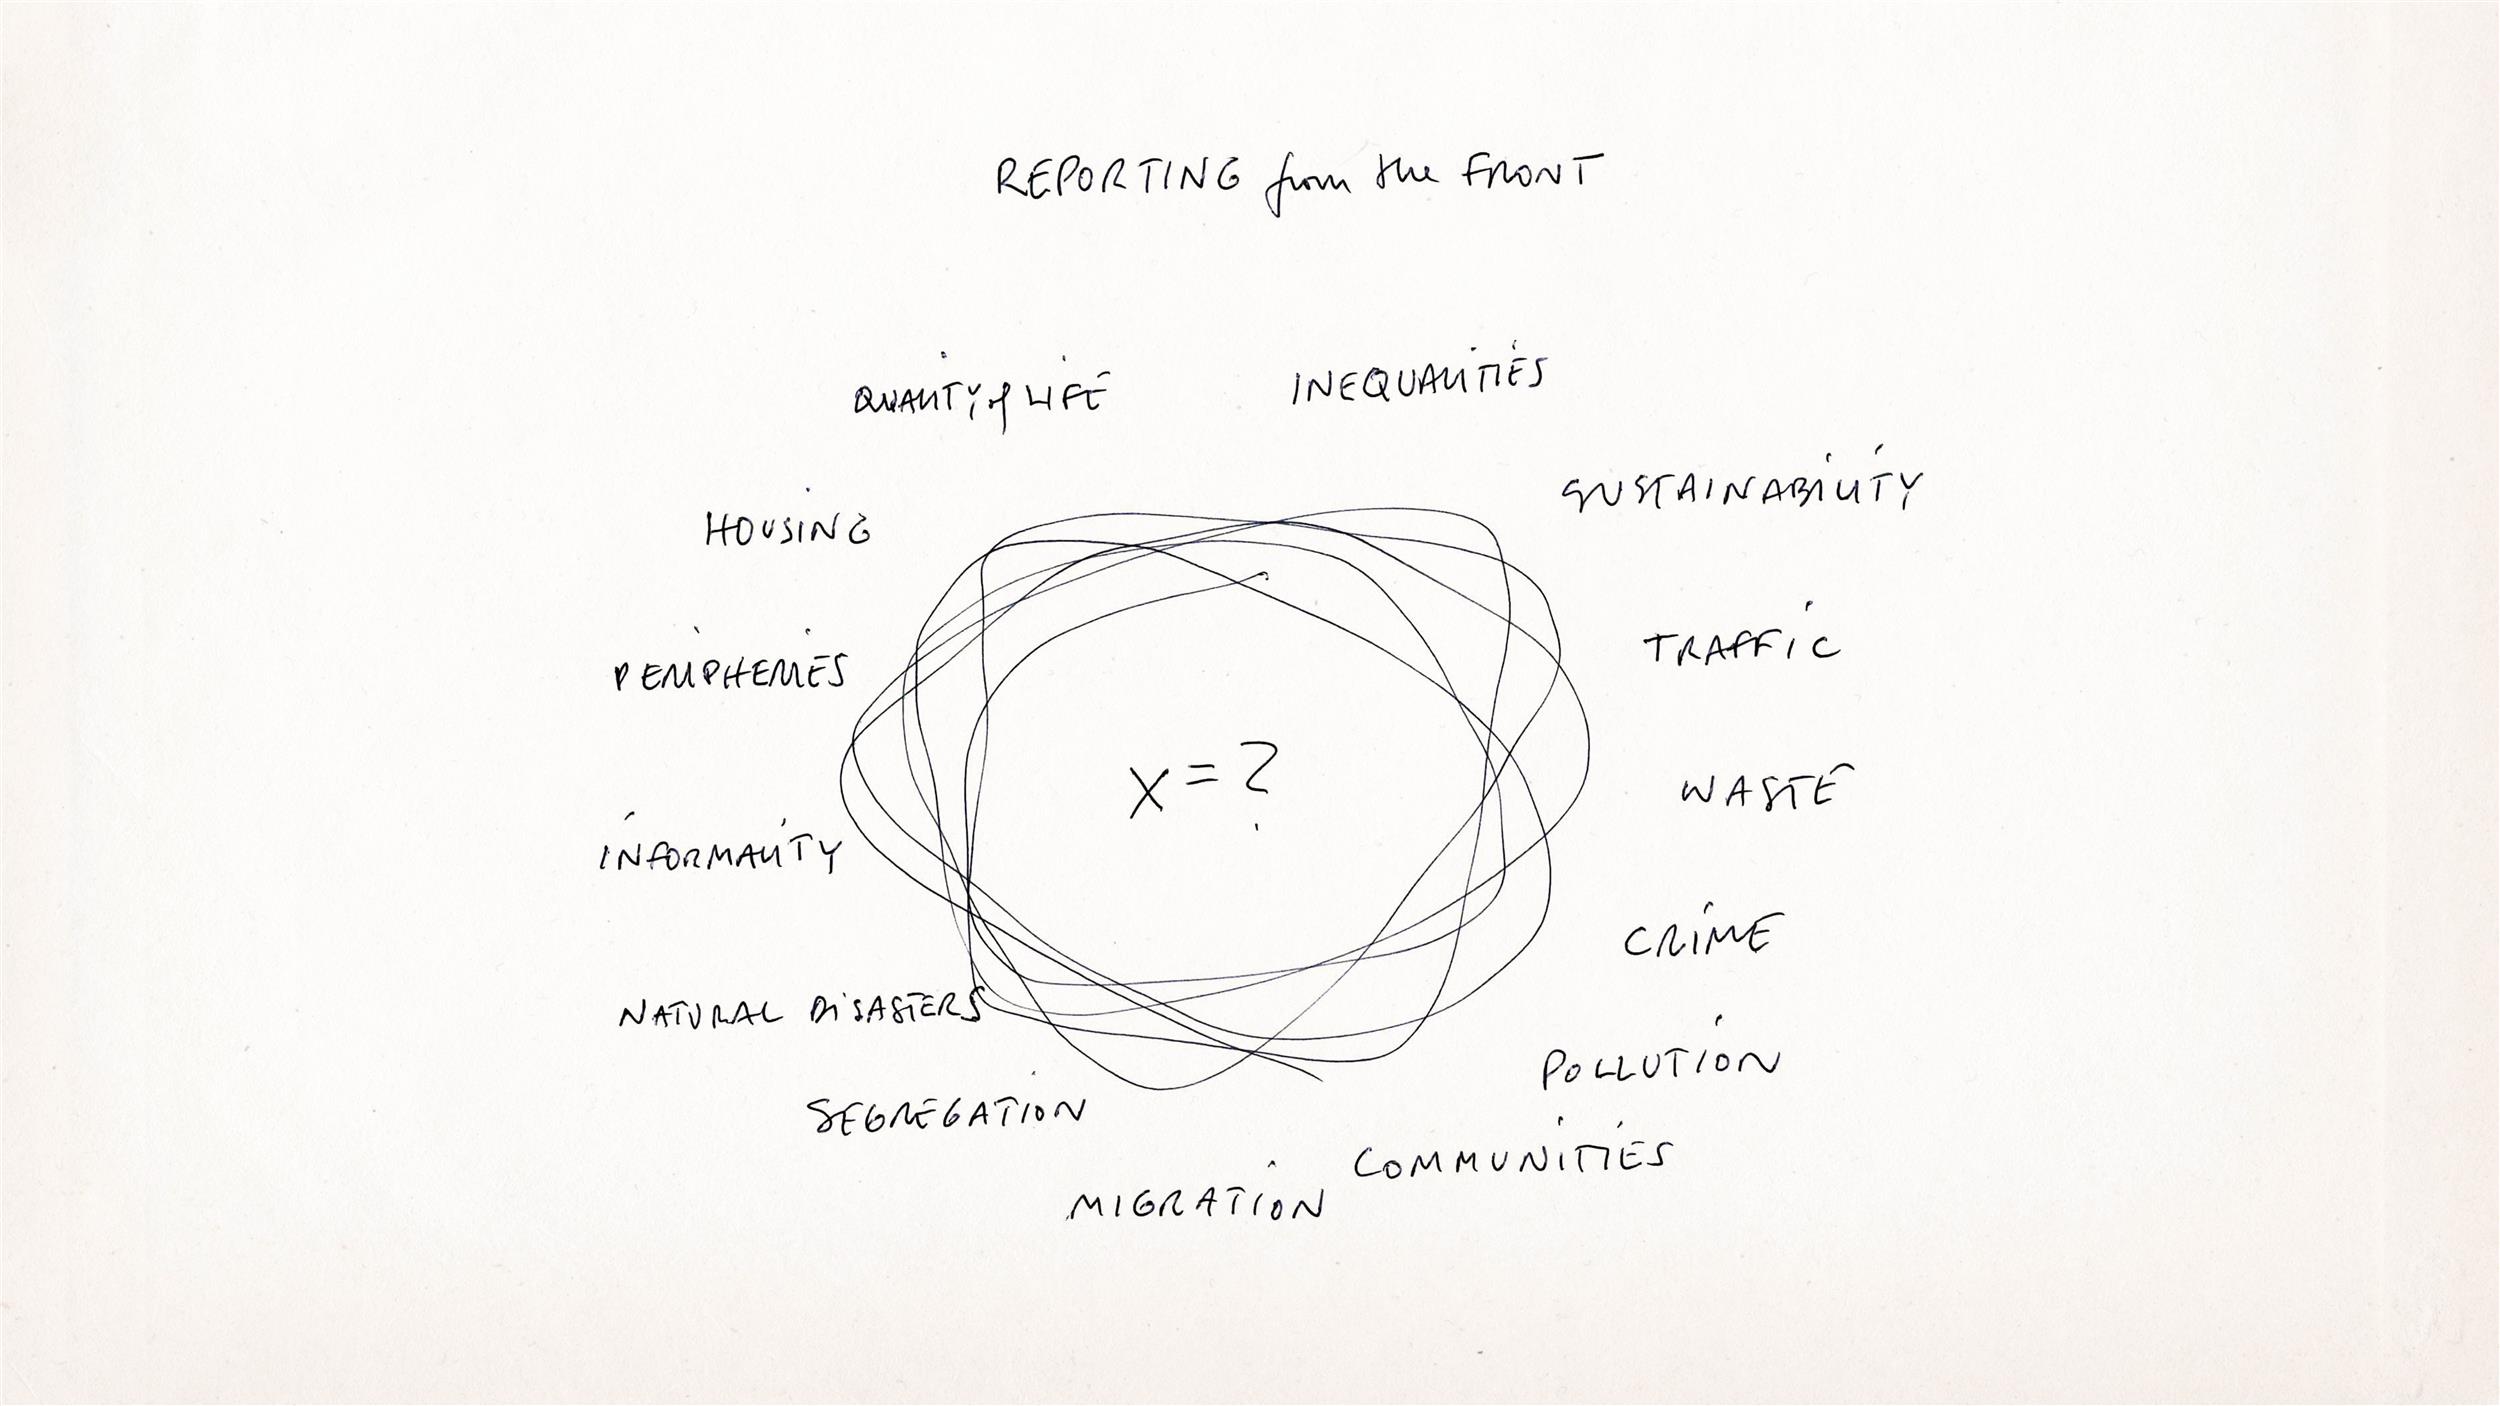 REPORTING from the FRONT
QUALITY of LIFE
INEQUALITIES
SUSTAINABILITY
HOUSING
TRAFFIC
PERIPHERIES
X = ?
WASTE
INFORMALITY
CRIME
NATURAL DISASTERS
POLLUTION
SEGREGATION
COMMUNITIES
MIGRATION